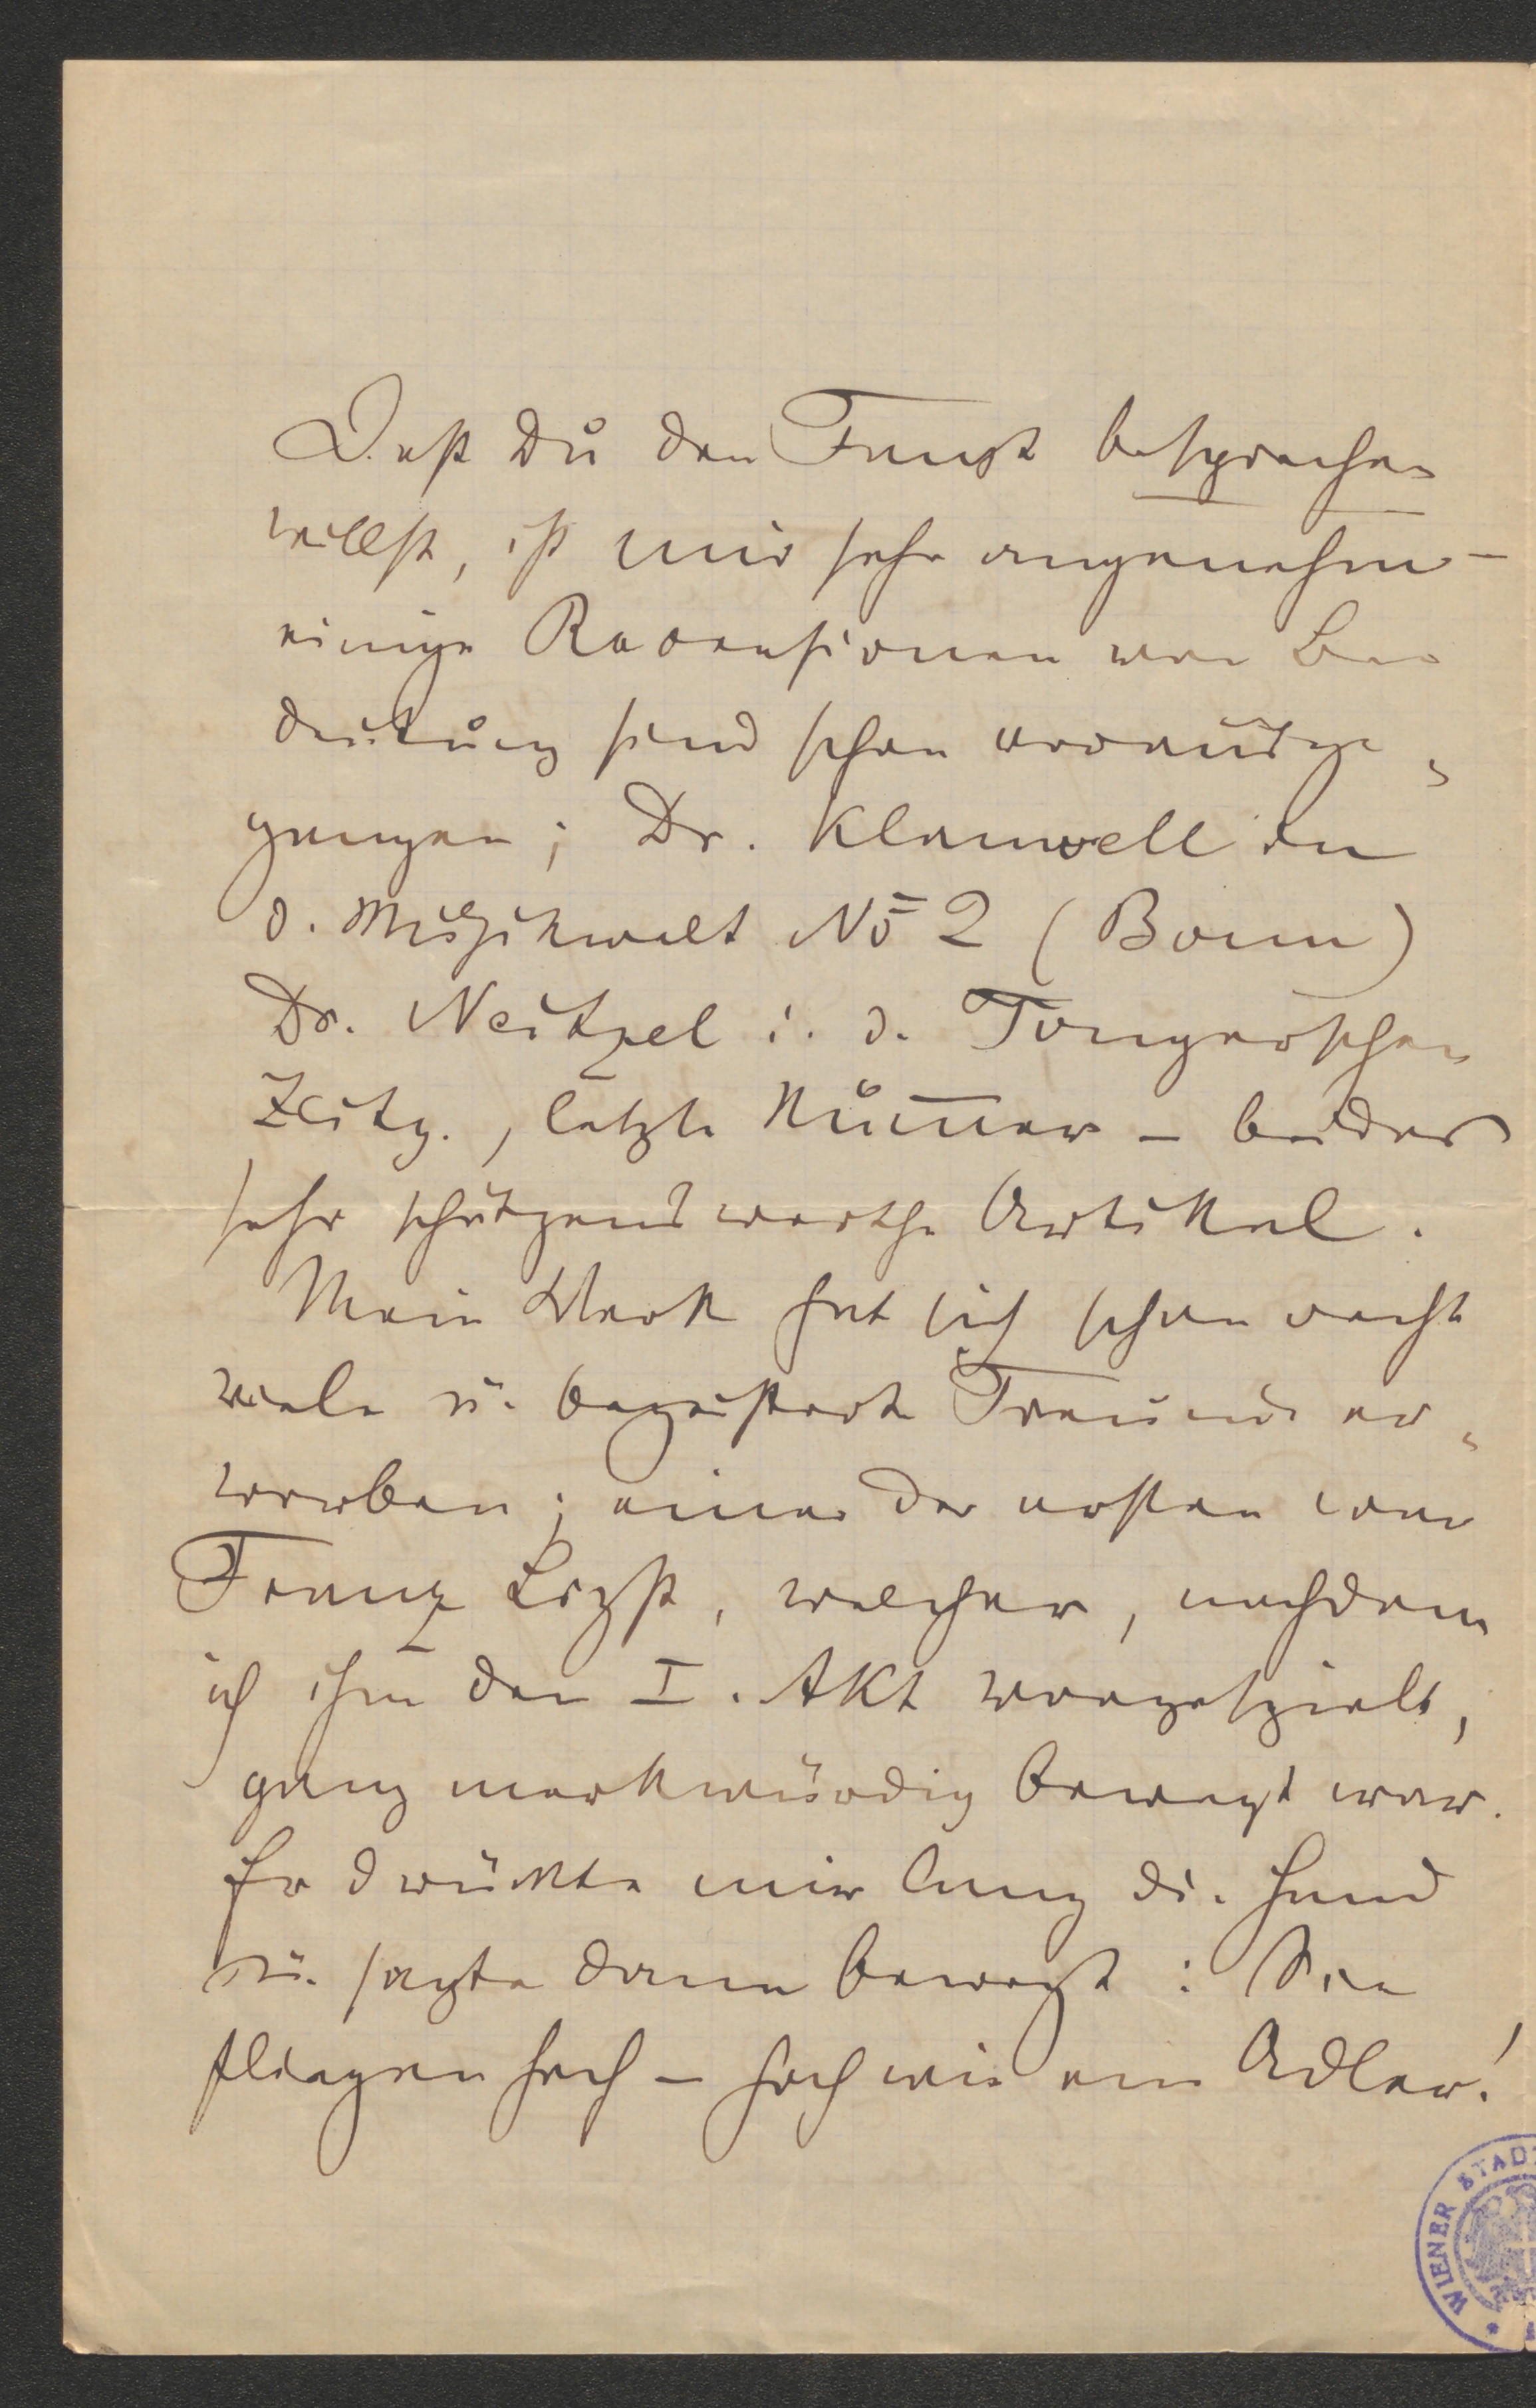 Daß Du den Faust besprechen
willst, ist mir sehr angenehm –
einige Recensionen von Be
deutung sind schon vorausge-
gangen; Dr. Klauwell in
d. Musikwelt No 2 (Bonn)
Dr. Neitzel i. d. Tongerschen
Zeitg., letzte Nummer – beides
sehr schätzenswerthe Artikel.
Mein Werk hat sich schon recht
viele u. begeisterte Freunde er-
worben; einer der ersten war
Franz Liszt, welcher, nachdem
ich ihm den I. Akt vorgespielt,
ganz merkwürdig bewegt war.
Er drückte mir lang die Hand
u. sagte dann bewegt: Sie
fliegen hoch – hoch wie ein Adler!
WIENER STADT